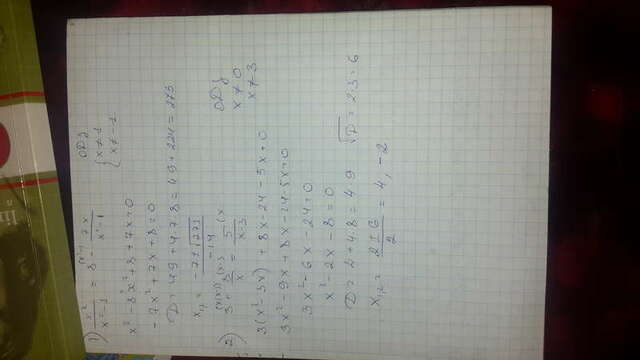 1) x²/(x²-1) = 8 - 7x/(x²-1)
ОДЗ
{ x ≠ 1
x ≠ -1
x² - 8x² + 8 + 7x = 0
-7x² + 7x + 8 = 0
D = 49 + 4·7·8 = 49 + 224 = 273
x₁,₂ = (-7 ± √273)/-14
2) 3 + 8/x = 5/(x-3)
ОДЗ
x ≠ 0
x ≠ 3
3(x² - 3x) + 8x - 24 - 5x = 0
3x² - 9x + 8x - 24 - 5x = 0
3x² - 6x - 24 = 0
x² - 2x - 8 = 0
D = 4 + 4·8 = 49 √D = 2·3 = 6
x₁,₂ = (2 ± 6)/2 = 4, -2